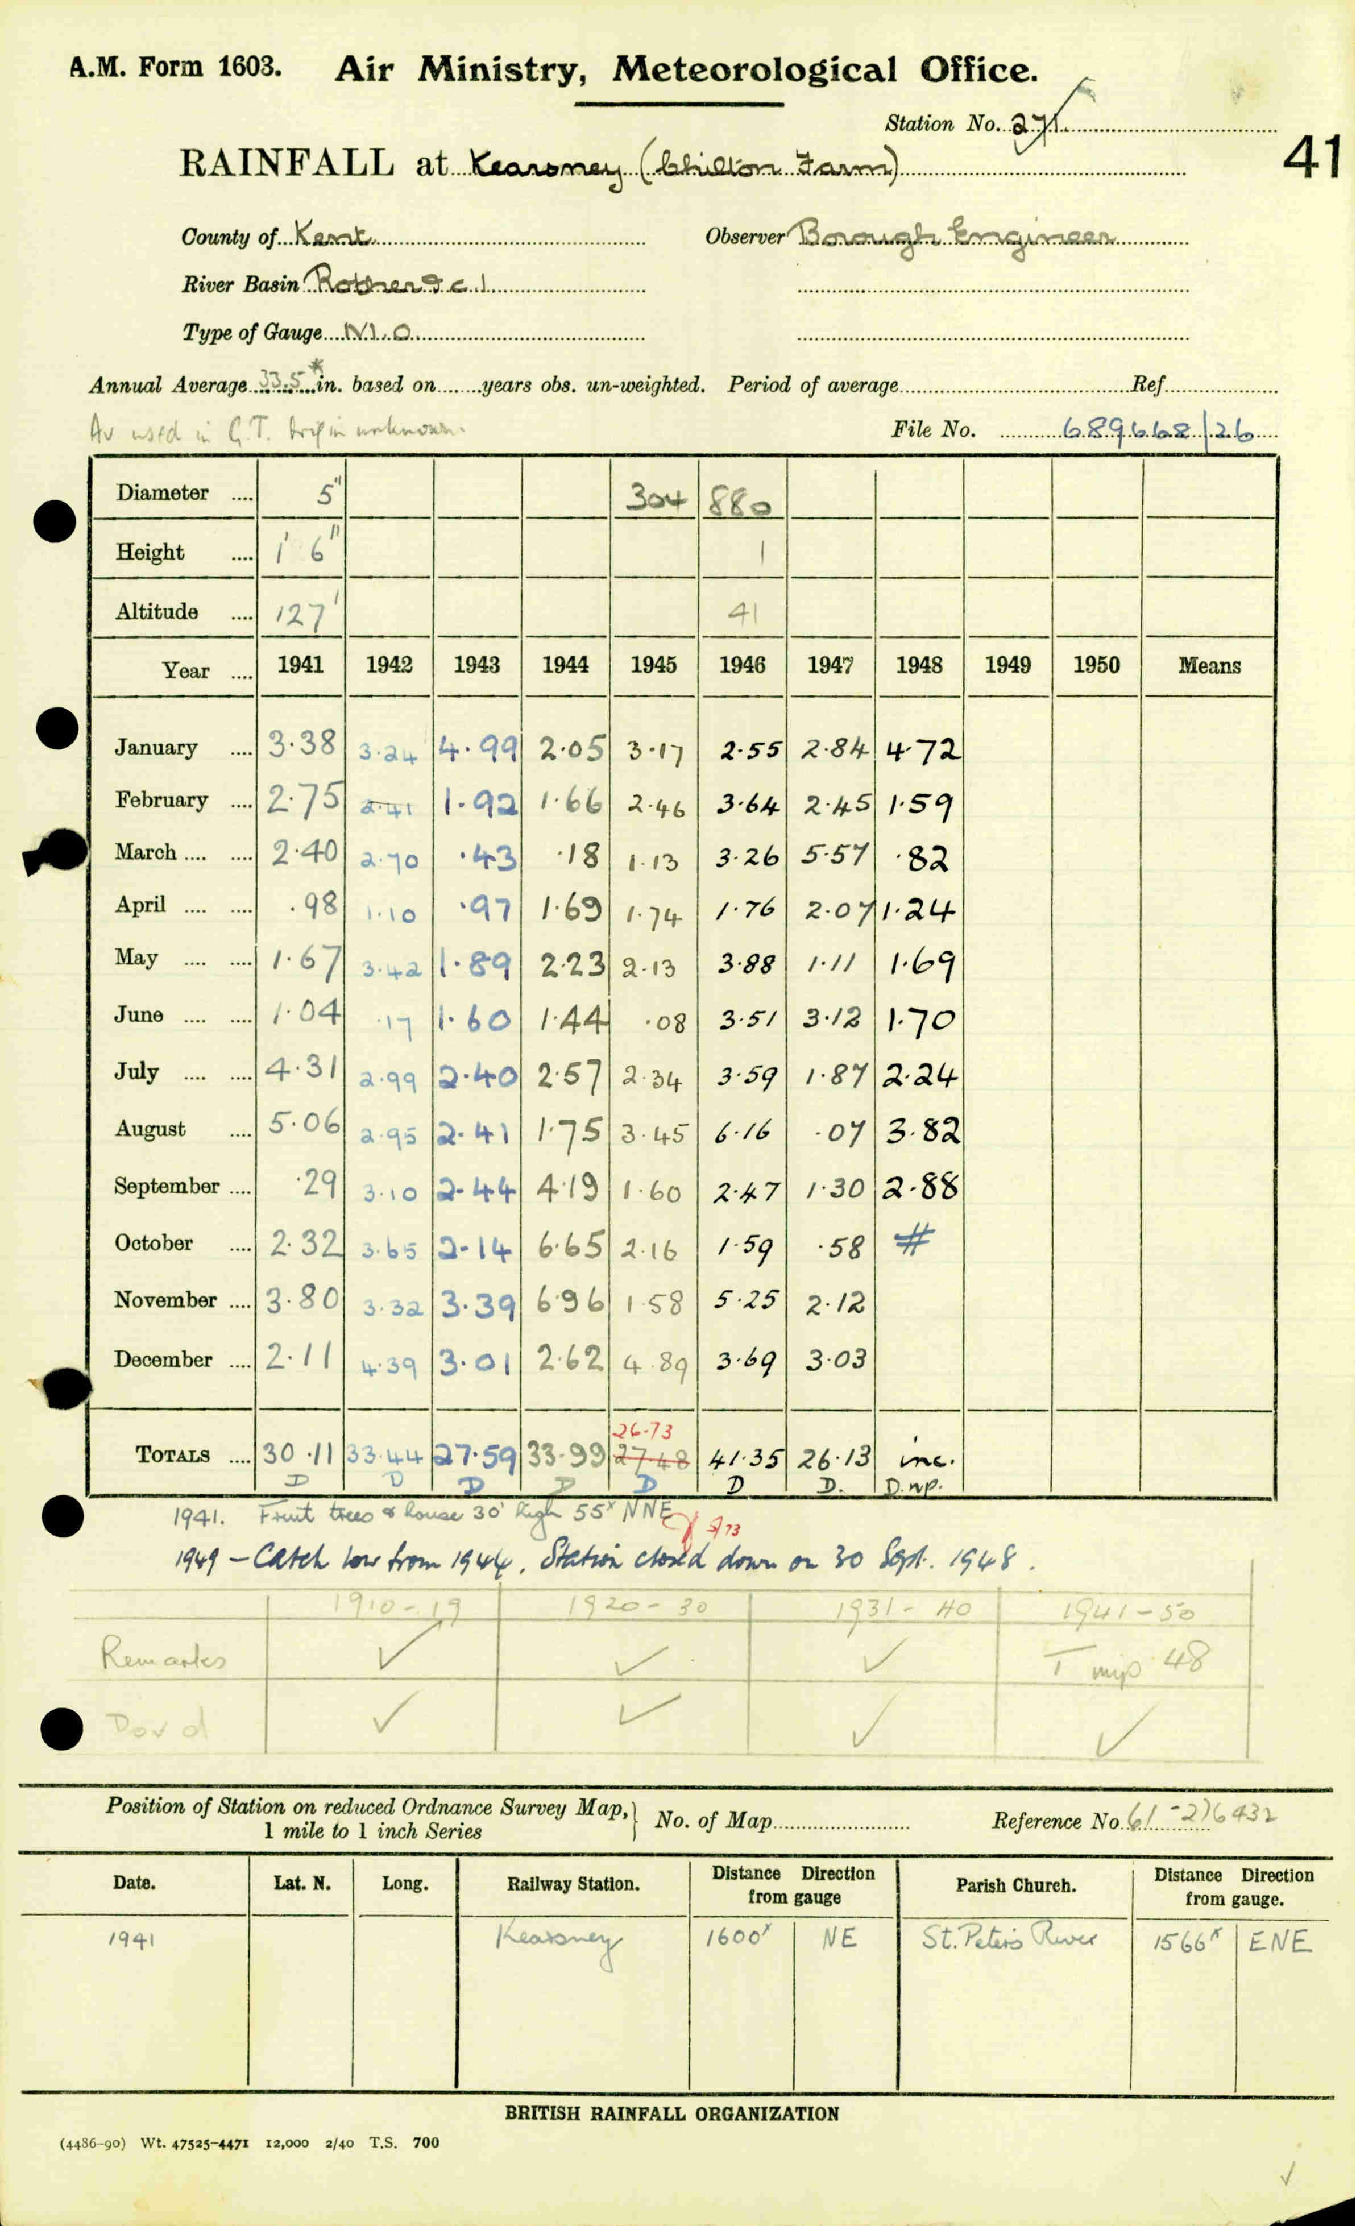 A.M. Form 1603. Air Ministry, Meteorological Office.
Station No. 271.
RAINFALL at Kearsney (Chilton Farm) 41
County of Kent Observer Borough Engineer
River Basin Rother &c 1
Type of Gauge M.O.
Annual Average 33.5* in. based on years obs. un-weighted. Period of average Ref.
Av used in G.T. origin unknown.
File No. 689668/26
Diameter 5" 304 880
Height 1' 6" 1
Altitude 127' 41
Year 1941 1942 1943 1944 1945 1946 1947 1948 1949 1950 Means
January 3.38 3.24 4.99 2.05 3.17 2.55 2.84 4.72
February 2.75 2.41 1.92 1.66 2.46 3.64 2.45 1.59
March 2.40 2.70 .43 .18 1.13 3.26 5.57 .82
April .98 1.10 .97 1.69 1.74 1.76 2.07 1.24
May 1.67 3.42 1.89 2.23 2.13 3.88 1.11 1.69
June 1.04 .17 1.60 1.44 .08 3.51 3.12 1.70
July 4.31 2.99 2.40 2.57 2.34 3.59 1.87 2.24
August 5.06 2.95 2.41 1.75 3.45 6.16 .07 3.82
September .29 3.10 2.44 4.19 1.60 2.47 1.30 2.88
October 2.32 3.65 2.14 6.65 2.16 1.59 .58 #
November 3.80 3.32 3.39 6.96 1.58 5.25 2.12
December 2.11 4.39 3.01 2.62 4.89 3.69 3.03
26.73
TOTALS 30.11 33.44 27.59 33.99 27.48 41.35 26.13 inc.
D D D D D D D. D.np.
1941. Fruit trees & house 30' high 55x NNE
5/73
1949 - Catch low from 1944. Station closed down on 30 Sept. 1948.
1910-19 1920-30 1931-40 1941-50
Remarks ✓ ✓ ✓ T mip 48
D or d ✓ ✓ ✓ ✓
Position of Station on reduced Ordnance Survey Map, 1 mile to 1 inch Series } No. of Map Reference No. 61-276432
Date. Lat. N. Long. Railway Station. Distance Direction from gauge Parish Church. Distance Direction from gauge.
1941 Kearsney 1600x NE St. Peter's River 1566x ENE
BRITISH RAINFALL ORGANIZATION
(4486-90) Wt. 47525-4471 12,000 2/40 T.S. 700